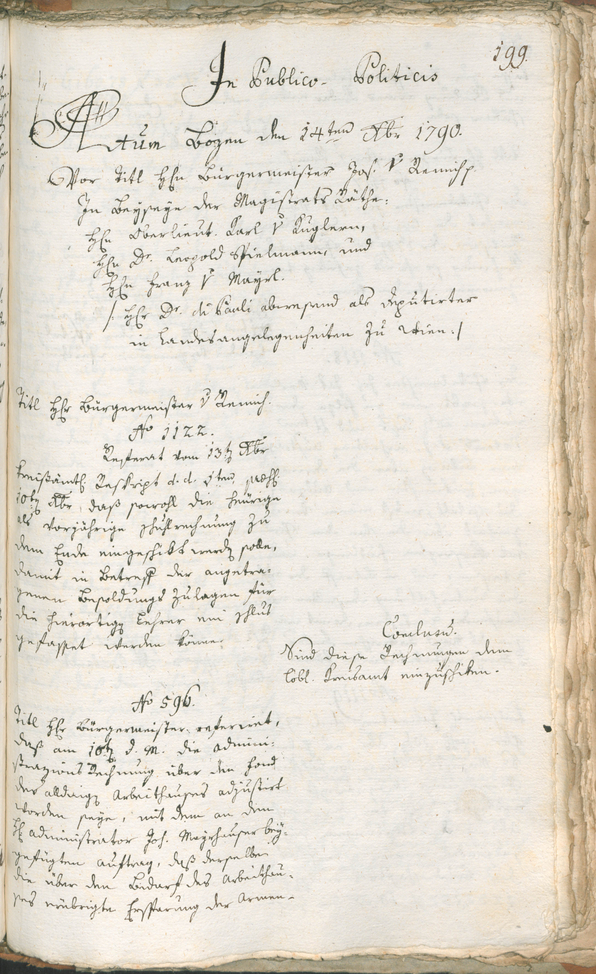 199.
In Publico- Politicis
Actum Bozen den 14ten Xbr 1790.
Vor Titl Hrn Bürgermeister Jos. v Remich.
In Beyseyn der Magistrats Räthe.
Hrn Oberlieut. Karl v Kuglern,
Hrn Dr. Leopold Spielmann, und
Hrn Franz v Mayrl.
/: Hr Dr. di Pauli abwesend als deputirter
in Landesangelegenheiten zu Wien. :/
Titl Hr Bürgermeister v Remich.
No 1122.
Referat vom 13t Xbr
Kreisämtl. Reskript d. d. 7ten
10t Xbr, daß sowohl die heurige
als vorjährige Schulrechnung zu
dem Ende eingeschikt werdn solle,
damit in Betreff der angetra-
genen Besoldungs Zulagen für
die hierortign Lehrer ein Schluß
gefasset werden könne.
Conclusum.
Sind diese Rechnungen dem
löbl. Kreisamt einzuschiken.
No 596.
Titl Hr Bürgermeister referiret,
daß am 10t d. M. die Admini-
strazions Rechnung über den Fond
des alldaign Arbeithauses adjustirt
worden seye, mit dem an den
H Administrator Joh. Mayrhauser bey-
gefügten Auftrag, daß derselbe
die über den Bedarf des Arbeithau-
ses erübrigte Ersparung der Armen-